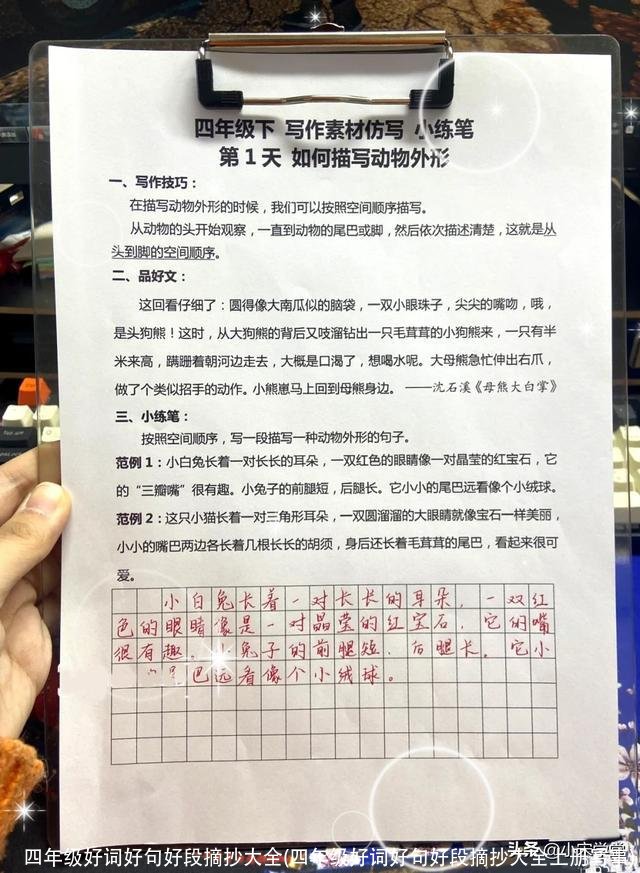 四年级下 写作素材仿写 小练笔
第1天 如何描写动物外形
一、写作技巧：
在描写动物外形的时候，我们可以按照空间顺序描写。
从动物的头开始观察，一直到动物的尾巴或脚，然后依次描述清楚，这就是从
头到脚的空间顺序。
二、品好文：
这回看仔细了：圆得像大南瓜似的脑袋，一双小眼珠子，尖尖的嘴吻，哦，
是头狗熊！这时，从大狗熊的背后又吱溜钻出一只毛茸茸的小狗熊来，一只有半
米来高，蹒跚着朝河边走去，大概是口渴了，想喝水呢。大母熊急忙伸出右爪，
做了个类似招手的动作。小熊崽马上回到母熊身边。 ——沈石溪《母熊大白掌》
三、小练笔：
按照空间顺序，写一段描写一种动物外形的句子。
范例1：小白兔长着一对长长的耳朵，一双红色的眼睛像一对晶莹的红宝石，它
的“三瓣嘴”很有趣。小兔子的前腿短，后腿长。它小小的尾巴远看像个小绒球。
范例2：这只小猫长着一对三角形耳朵，一双圆溜溜的大眼睛就像宝石一样美丽，
小小的嘴巴两边各长着几根长长的胡须，身后还长着毛茸茸的尾巴，看起来很可
爱。
小白兔长着一对长长的耳朵，一双红
色的眼睛像是一对晶莹的红宝石，它的嘴
很有趣。小兔子的前腿短，后腿长。它小
巴远看像个小绒球。
头条@小宋学
四年级好词好句好段摘抄大全(四年级好词好句好段摘抄大全上册